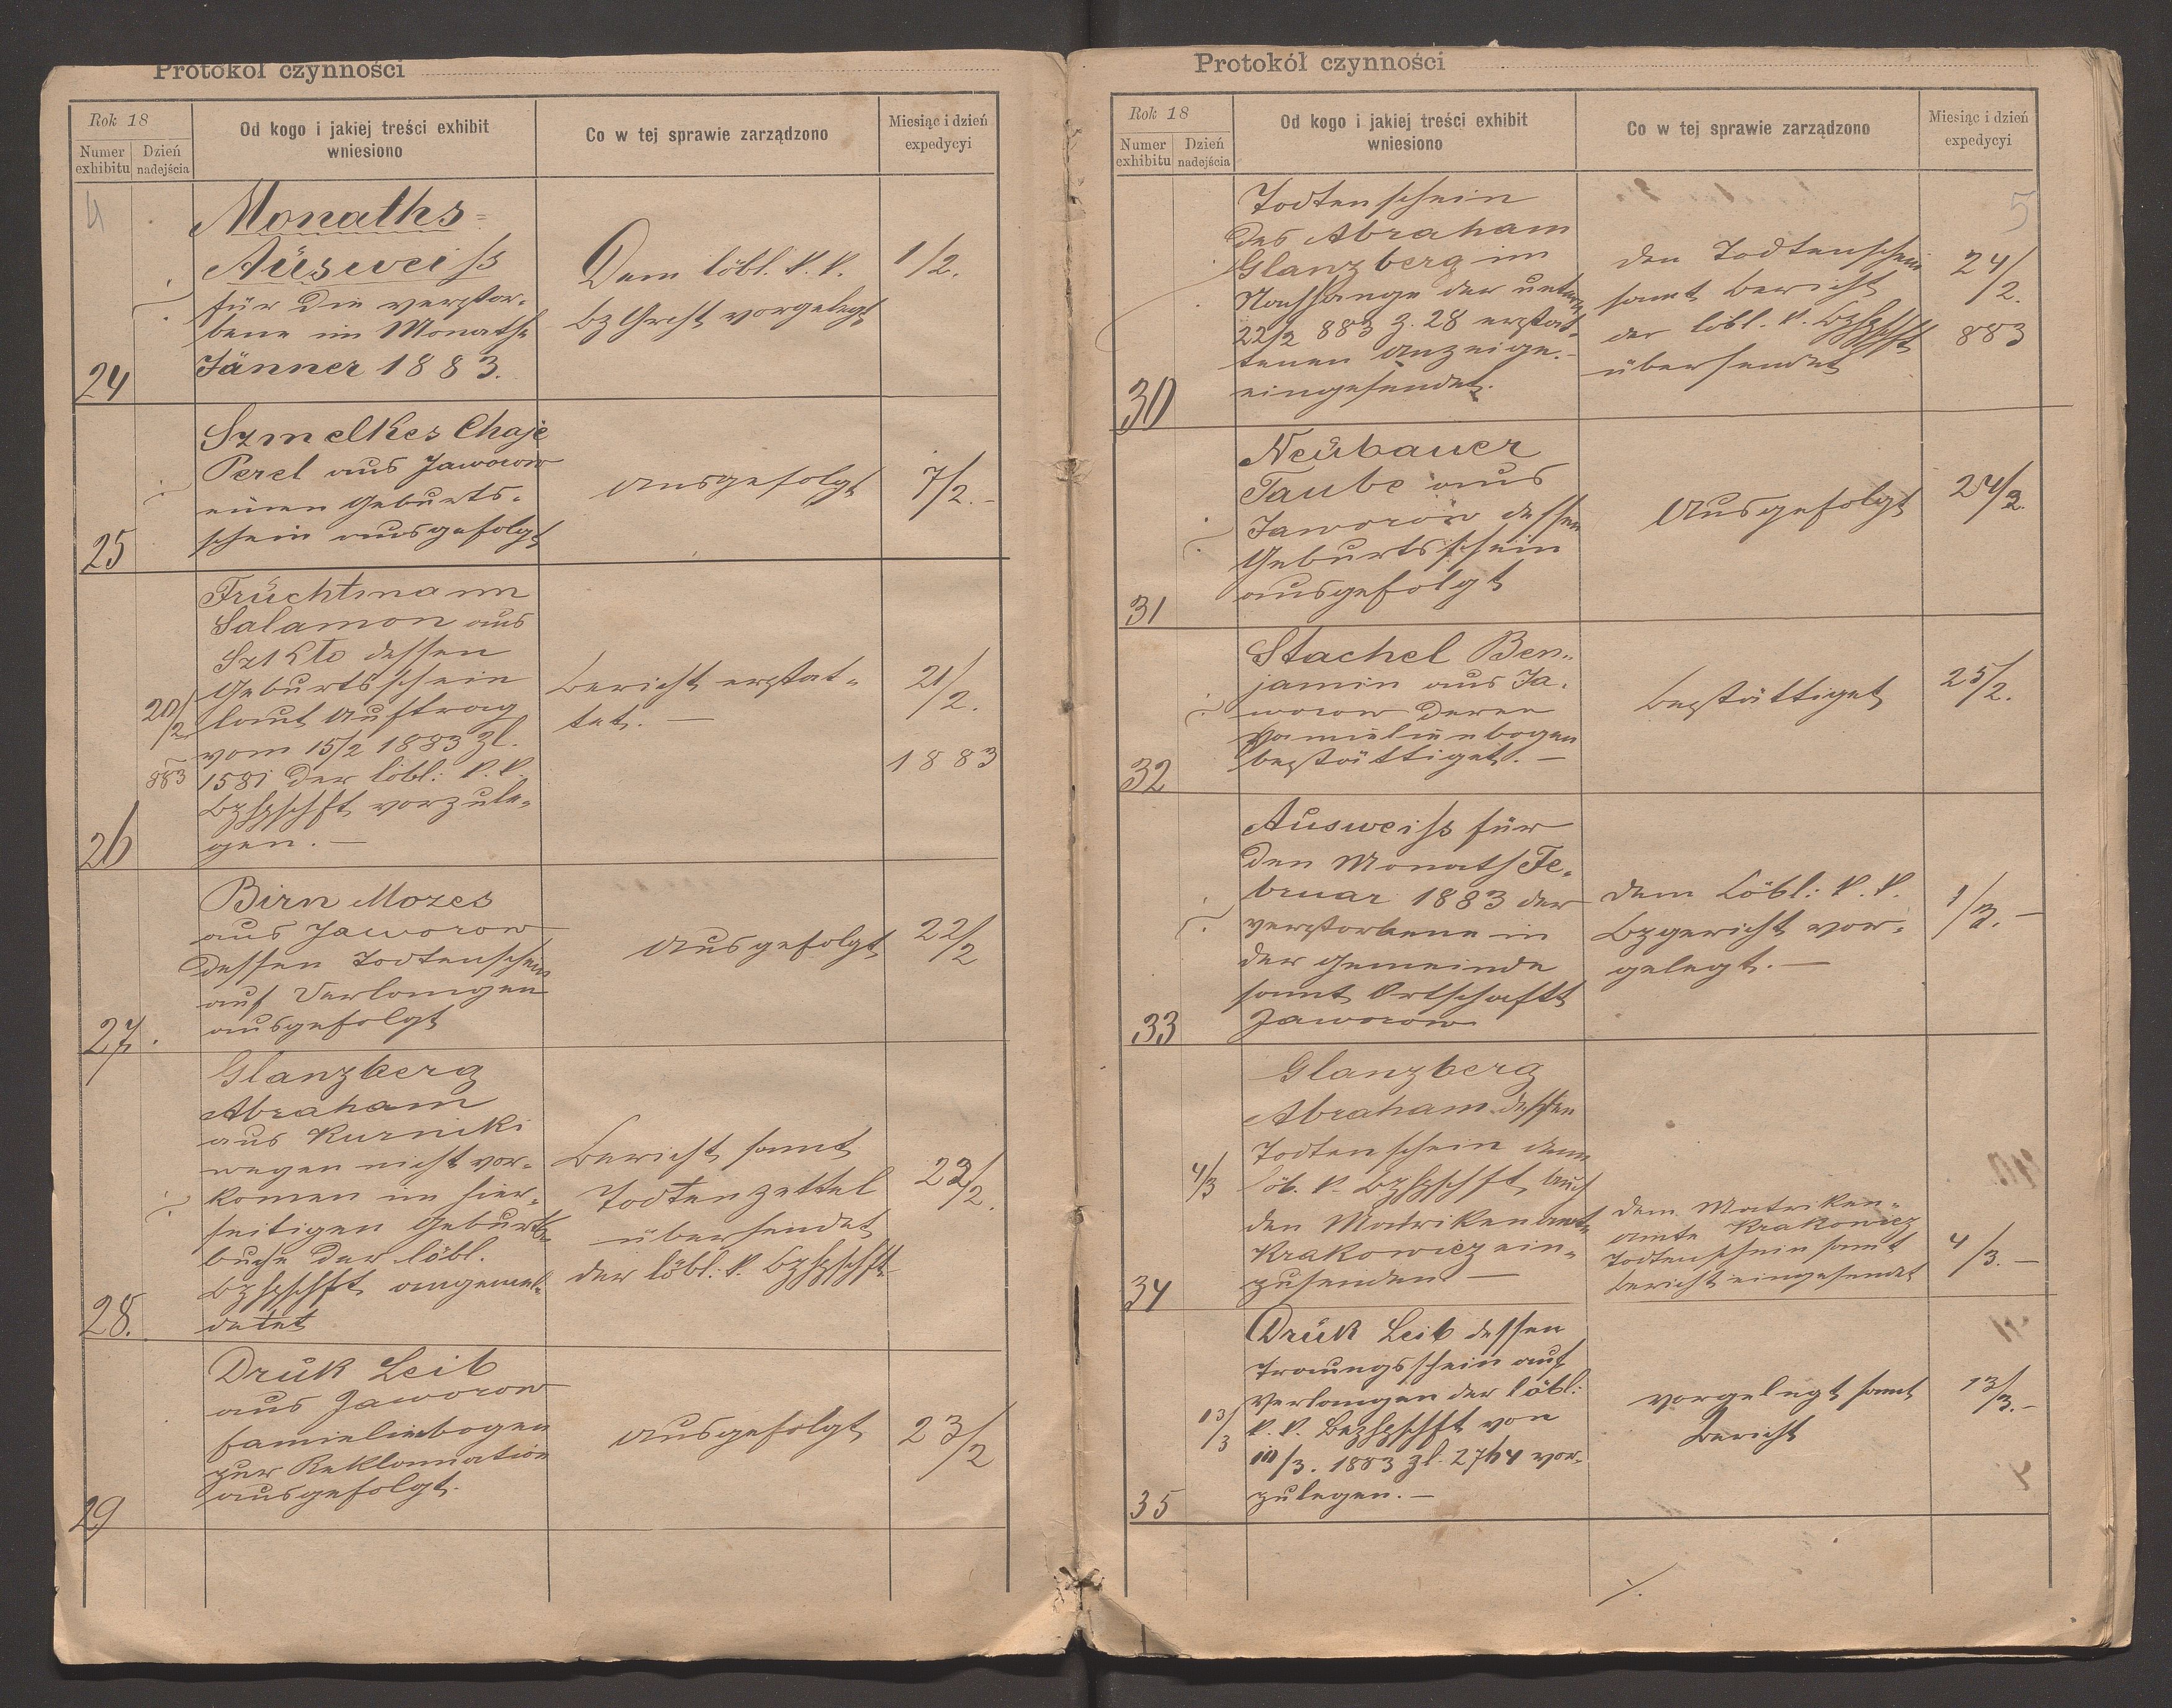 Protokół czynności
Rok 18
Numer exhibitu
Dzień nadejścia
Od kogo i jakiej treści exhibit
wniesiono
Co w tej sprawie zarządzono
Miesiąc i dzień
expedycyi
4
24
Monaths=
Aüsweiss
für die verstor-
bene im Monathe
Jänner 1883.
Dem löbl. k. k.
BzGrcht vorgelegt
1/2.
25
Szmelkes Chaje
Perel aus Jaworow
einen Geburts-
schein ausgefolgt
ausgefolgt
7/2.-
26
20/2
883
Früchtmann
Salamon aus
dessen
Geburtsschein
laut Auftrag
vom 15/2 1883 Zl.
1581 der löbl: k.k.
Bzhptschft vorzule-
gen.-
Bericht erstat-
tet.-
21/2.
1883
27.
Birn Mozes
aus Jaworow
dessen Todtenschein
auf Verlangen
ausgefolgt
ausgefolgt
22/2
28.
Glanzberg
Abraham
aus Kurniki
wegen nicht vor-
komen im hier-
seitigen Geburts-
buche der löbl.
Bzhptschft angemel-
detet
Bericht samt
Todtenzettel
übersendet
der löbl: k. Bzhptschft
22/2.
29
Drük Leib
aus Jaworow
Famielienbogen
zur Reklamation
ausgefolgt.
ausgefolgt
23/2
Protokół czynności
Rok 18
Numer exhibitu
Dzień nadejścia
Od kogo i jakiej treści exhibit
wniesiono
Co w tej sprawie zarządzono
Miesiąc i dzień
expedycyi
5
30
Todtenschein
des Abraham
Glanzberg im
Nachhange der unterm
22/2 883 Z. 28 erstat-
tenen Anzeige.-
eingesendet.
den Todtenschein
samt Bericht
der löbl. k. Bzhptschft
übersendet
24/2.
883
31
Neübauer
Taube aus
Jaworow dessen
Geburtsschein
ausgefolgt
Ausgefolgt
24/2.
32
Stachel Ben-
jamin aus Ja-
worow deren
Famielienbogen
bestättiget.-
bestättiget
25/2.
33
Ausweiss für
den Monath Fe-
bruar 1883 der
verstorbene in
der Gemeinde
samt Ortschaft
Jaworow
dem Löbl: k. k.
Bzgericht vor-
gelegt.-
1/3.-
34
4/3
Glanzberg
Abraham dessen
Todtenschein dem
löb. k. Bzhptschft
den Matrikenamt
Krakowiez ein-
zusenden -
dem Matriken-
amte Krakowiez
Todtenschein samt
Bericht eingesendet
4/3.-
35
13/3
Drük Leib dessen
Trauungsschein auf
Verlangen der löbl:
k. k. Bezhptschft von
10/3. 1883 Zl. 2764 vor-
zulegen.-
vorgelegt samt
Bericht
13/3.-